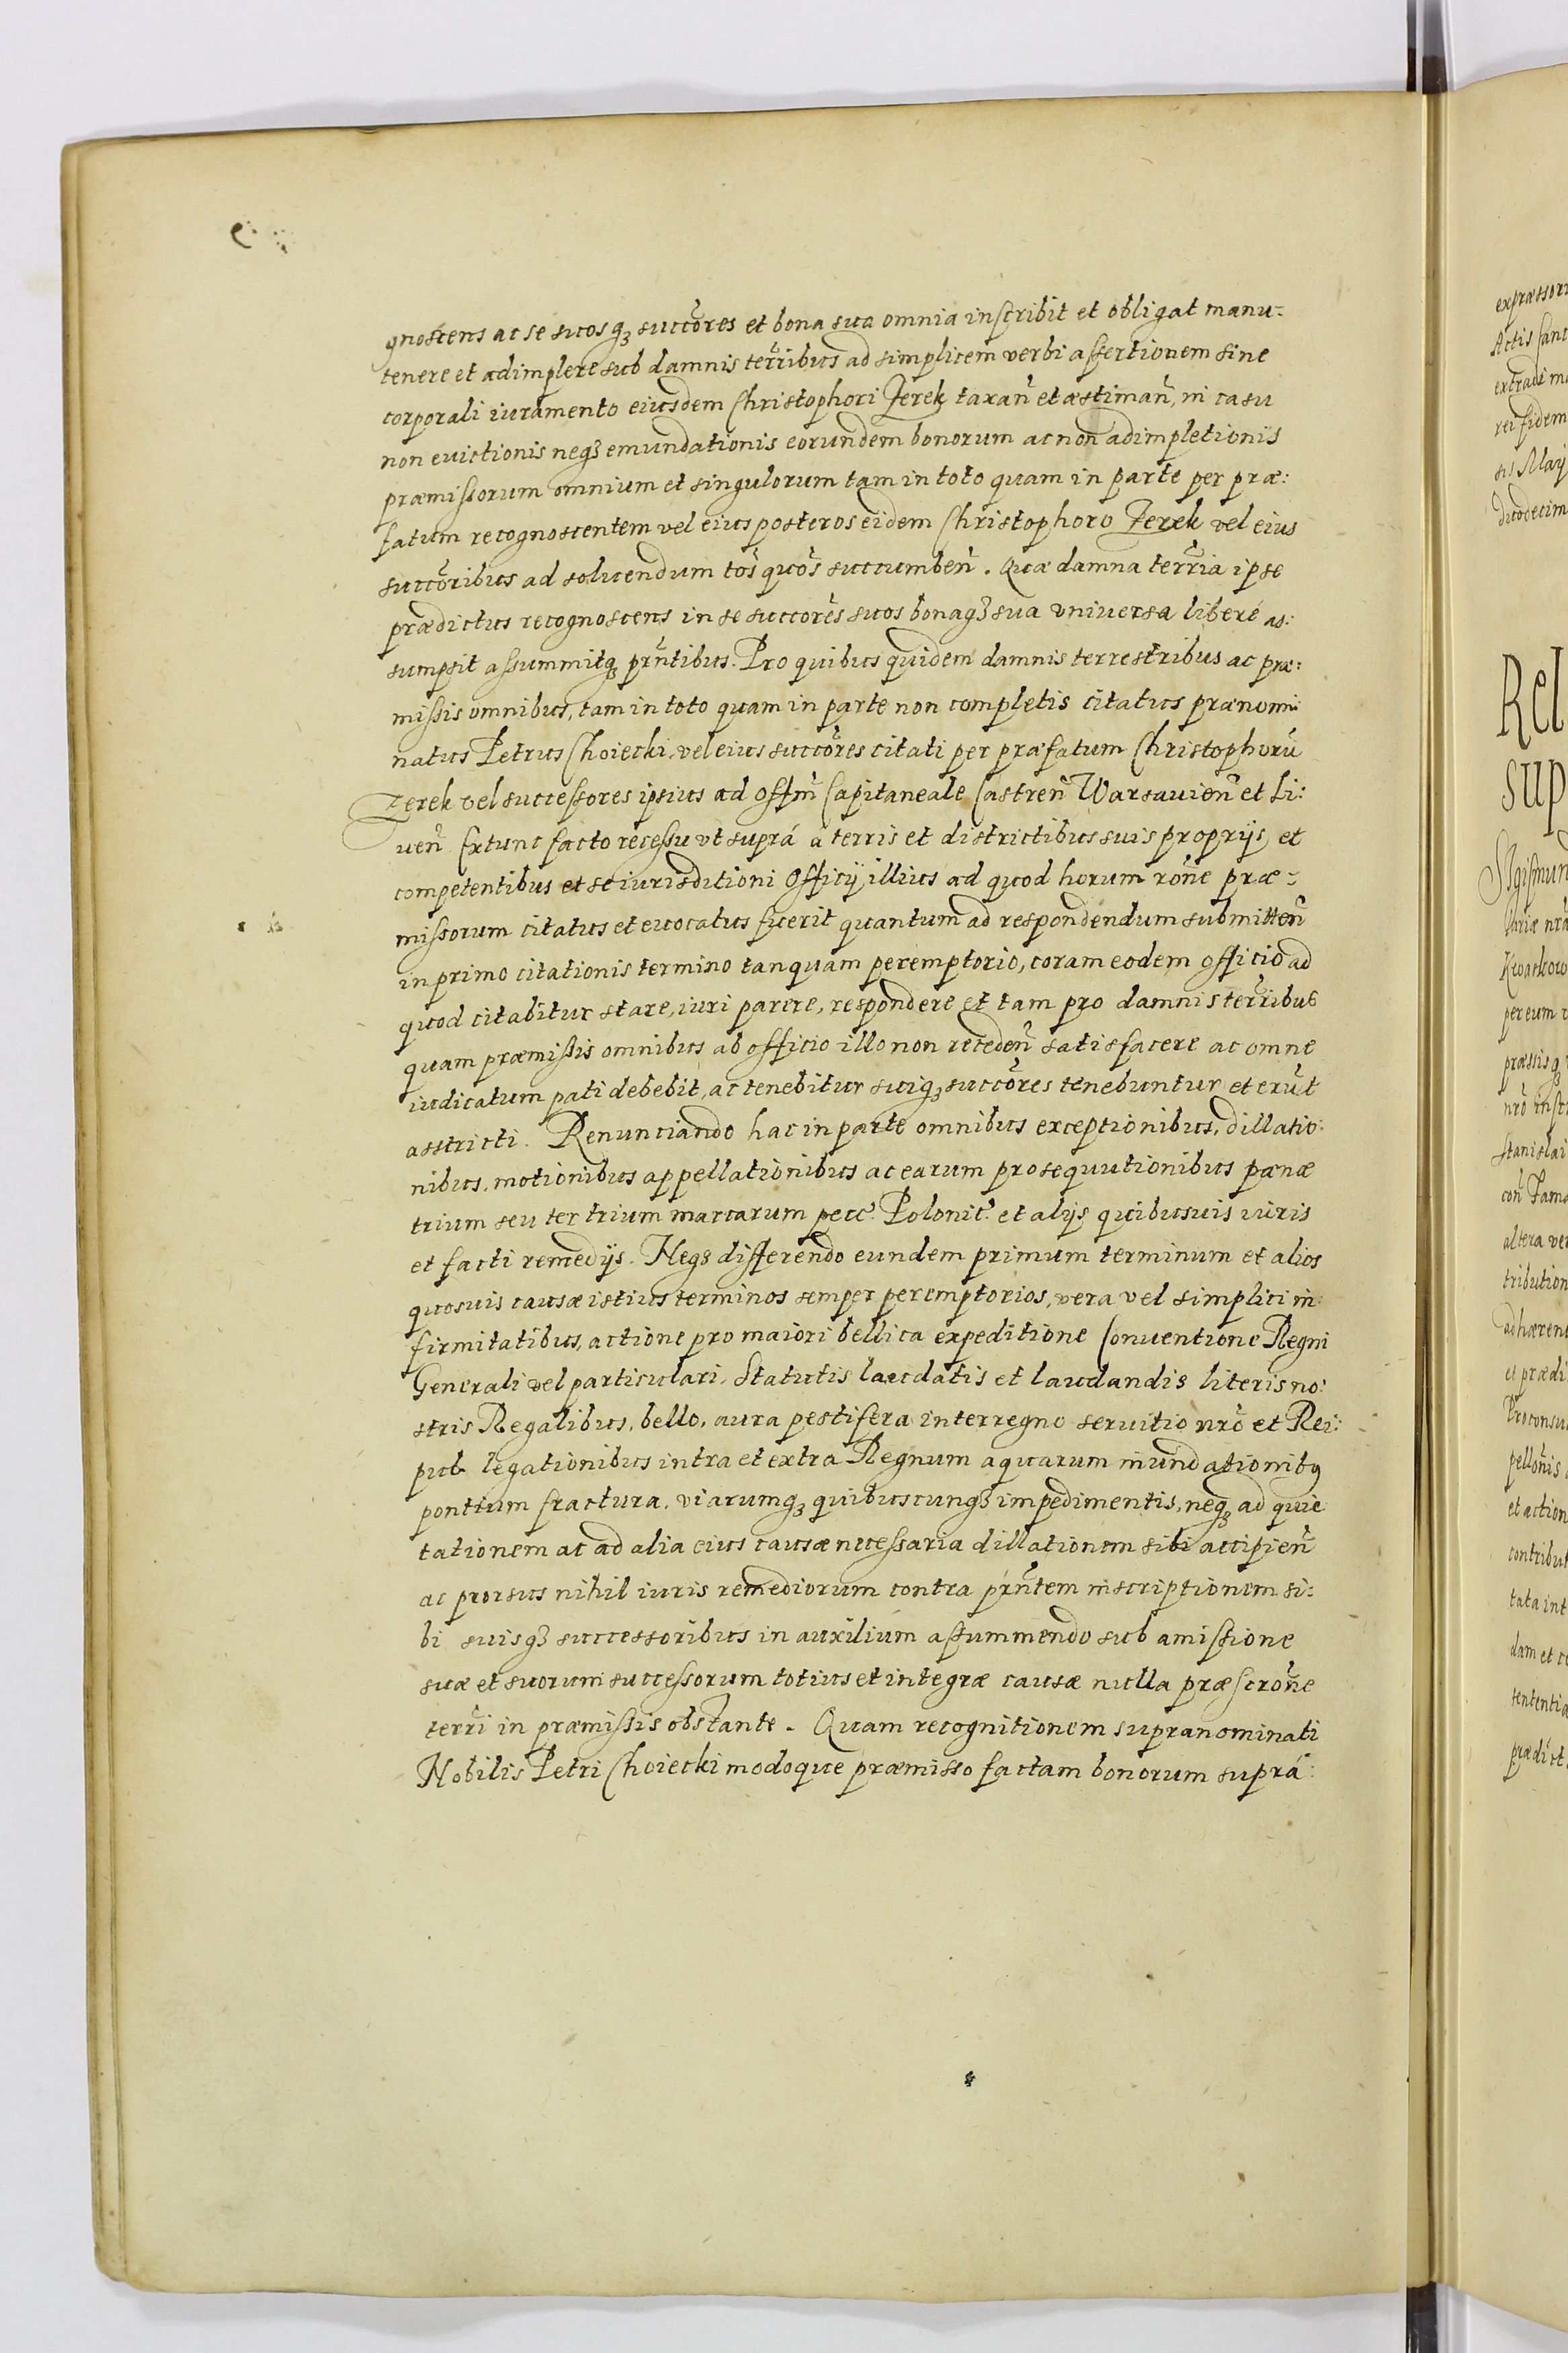 gnoscens ac se suosqȝ succōres et bona sua omnia inscribit et obligat manu-
tenere et adimplere sub damnis terribus ad simplicem verbi assertionem sine
corporali iuramento eiusdem Christophori Zerek taxan̄ et æstiman̄, in casu
non euictionis neqȝ emundationis eorundem bonorum ac non adimpletionis
præmissorum omnium et singulorum tam in toto quam in parte per præ:
fatum recognoscentem vel eius posteros eidem Christophoro Zerek vel eius
succōribus ad soluendum tōs quōs succumben̄. Quæ damna terria ipse
prædictus recognoscens in se succōres suos bonaqȝ sua vniversa liberé as:
sumpsit assummitqȝ prn̄tibus. Pro quibus quidem damnis terrestribus ac præ:
missis omnibus, tam in toto quam in parte non completis citatus prænomi
natus Petrus Choiecki, vel eius succōres citati per præfatum Christophorū
Zerek vel successores ipsius ad Offm̄ Capitaneale Castren̄ Warsauien̄ et Li:
uen̄ Extunc facto recessu vt suprá á terris et districtibus suis proprijs et
competentibus et se iurisditioni Officij illius ad quod horum rōne præ-
missorum citatus et euocatus fuerit quantum ad respondendum submitten̄
in primo citationis termino tanquam peremptorio, coram eodem officio ad
quod citabitur stare, iuri parere, respondere et tam pro damnis terribus
quam præmissis omnibus ab officio illo non receden̄ satisfacere ac omne
iudicatum pati debebit, ac tenebitur suiqȝ succōres tenebuntur et erūt
asstricti. Renunciando hac in parte omnibus exceptionibus, dillatio:
nibus, motionibus appellationibus ac earum prosequutionibus pænæ
trium seu ter trium marcarum pecc. Polonic. et alijs quibusuis iuris
et facti remedijs. Neqȝ differendo eundem primum terminum et alios
quosuis causæ istius terminos semper peremptorios, vera vel simplici in:
firmitatibus, actione pro maiori bellica expeditione Conuentione Regni
Generali vel particulari, Statutis laudatis et laudandis literis no:
stris Regalibus, bello, aura pestifera interregno seruitio nrō et Rei:
pub legationibus intra et extra Regnum aquarum inundationibꝰ
pontium fractura, viarumqȝ quibuscunqȝ impedimentis, neqȝ ad quie
tationem ac ad alia eius causæ necessaria dillationem sibi accipien̄
ac prorsus nihil iuris remediorum contra prn̄tem inscriptionem si:
bi suisqȝ successoribus in auxilium assummendo sub amissione
suæ et suorum successorum totius et integræ causæ nulla præscrōne
terri in præmissis obstante. Quam recognitionem supranominati
Nobilis Petri Choiecki modoque præmisso factam bonorum suprá:
expressoru
Actis
extradi ma
rei fidem
Maij
duodecim
Rel
sup
Sigismun
Kwaskow
per eum
Stanislai
altera ver
tribution
adhærent
et prædi
Proconsu
et action
contribut
tata int
dam et
sententia
prædict